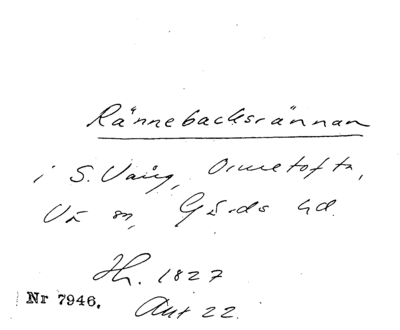 Rännebacksrännan
i S. Vång, Ormetofta,
Vä sn, Gärds hd.
Jh. 1827
Nr 7946. Akt 22.